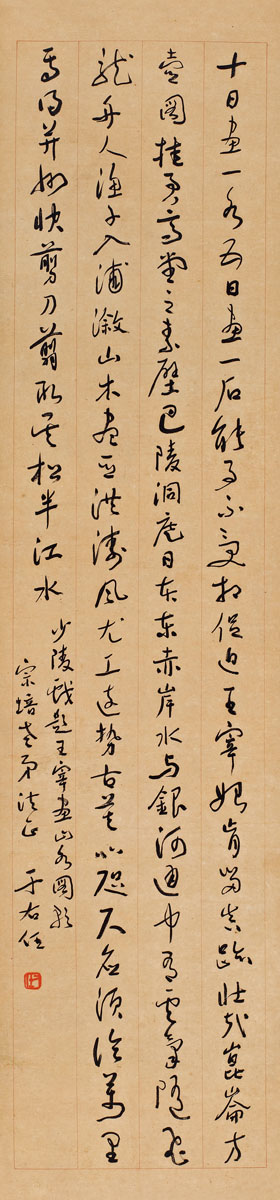 十日畫一水五日畫一石能事不受相促迫王宰始肯留真跡壯哉崑崙方
壺圖挂君高堂之素壁巴陵洞庭日本東赤岸水与銀河通中有雲氣隨飛
龍舟人漁子入浦漵山木盡亞洪濤風尤工遠勢古莫比咫尺應須論萬里
焉得并州快剪刀翦取吳松半江水
少陵戲題王宰畫山水圖歌
宗培老弟法正 于右任